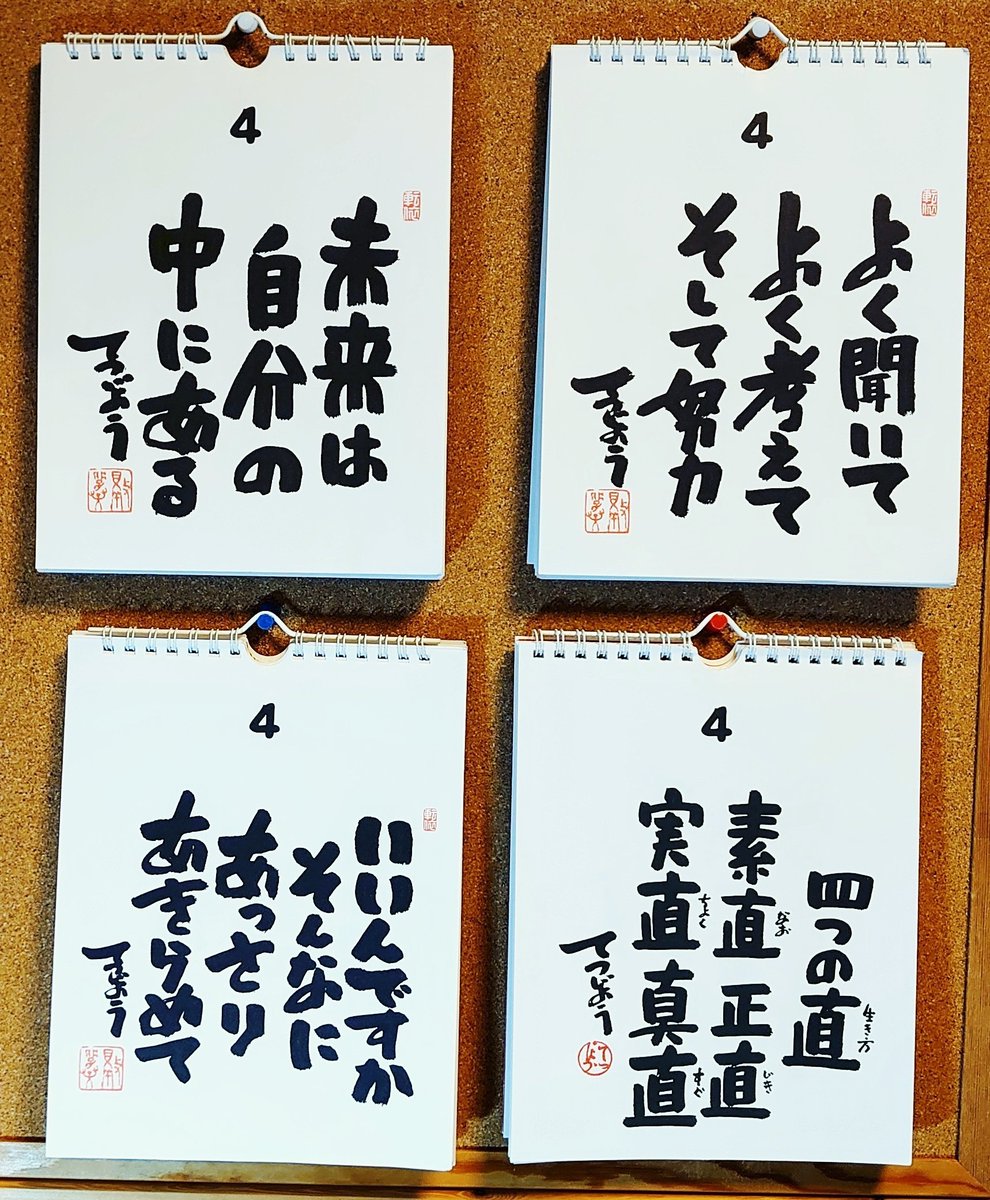 4
未来は
自分の
中にある
てつどう
4
よく聞いて
よく考えて
そして努力
4
いいんですか
そんなに
あっさり
あきらめて
4
四つの直
生き方
素直 正直
なお
じき
実直 真直
ちょく
すぐ